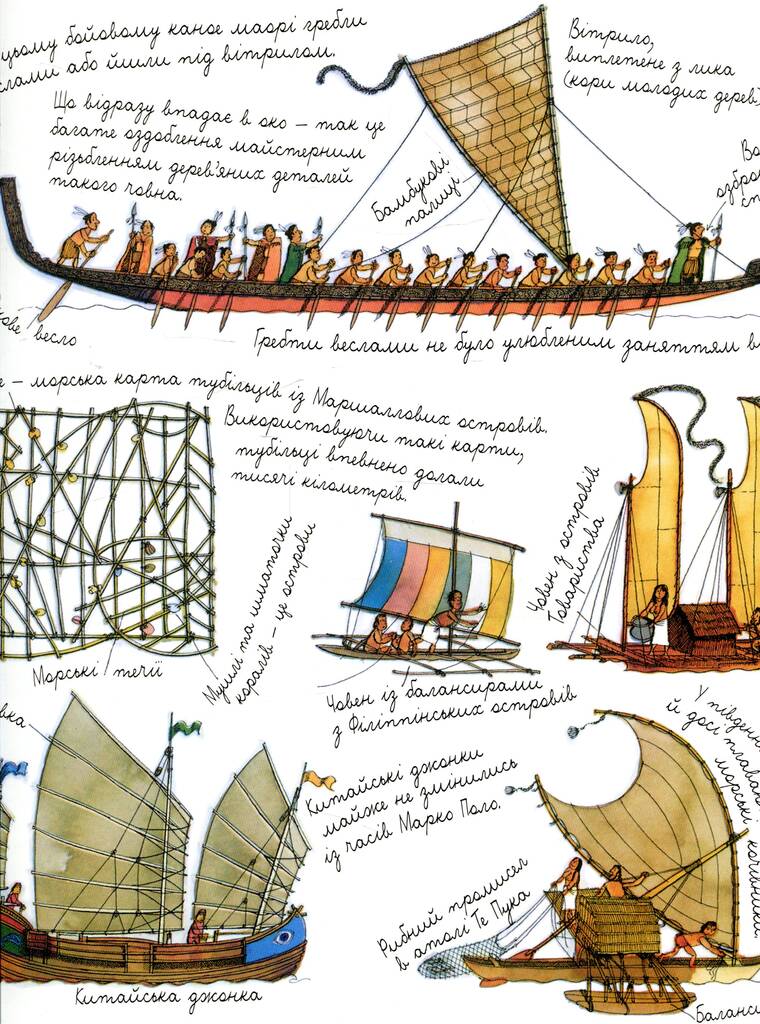 цьому бойовому каное маорі гребли
або йшли під вітрилом.
Вітрило,
виплетене з лика
(кори молодих дерев)
Що відразу впадає в око – так це
багате оздоблення майстерним
різьбленням дерев'яних деталей
такого човна.
Бамбукові
палиці
весло
Гребти веслами не було улюбленим заняттям
– морська карта тубільців із Маршаллових островів.
Використовуючи такі карти,
тубільці впевнено долали
тисячі кілометрів.
Човен з островів
Товариства
Морські течії
Мушлі та шматочки
коралів – це острови
Човен із балансирами
з Філіппінських островів
Китайські джонки
майже не змінились
із часів Марко Поло.
У
й досі
морські
кочівники,
Рибний промисел
в атолі Те Пука
Китайська джонка